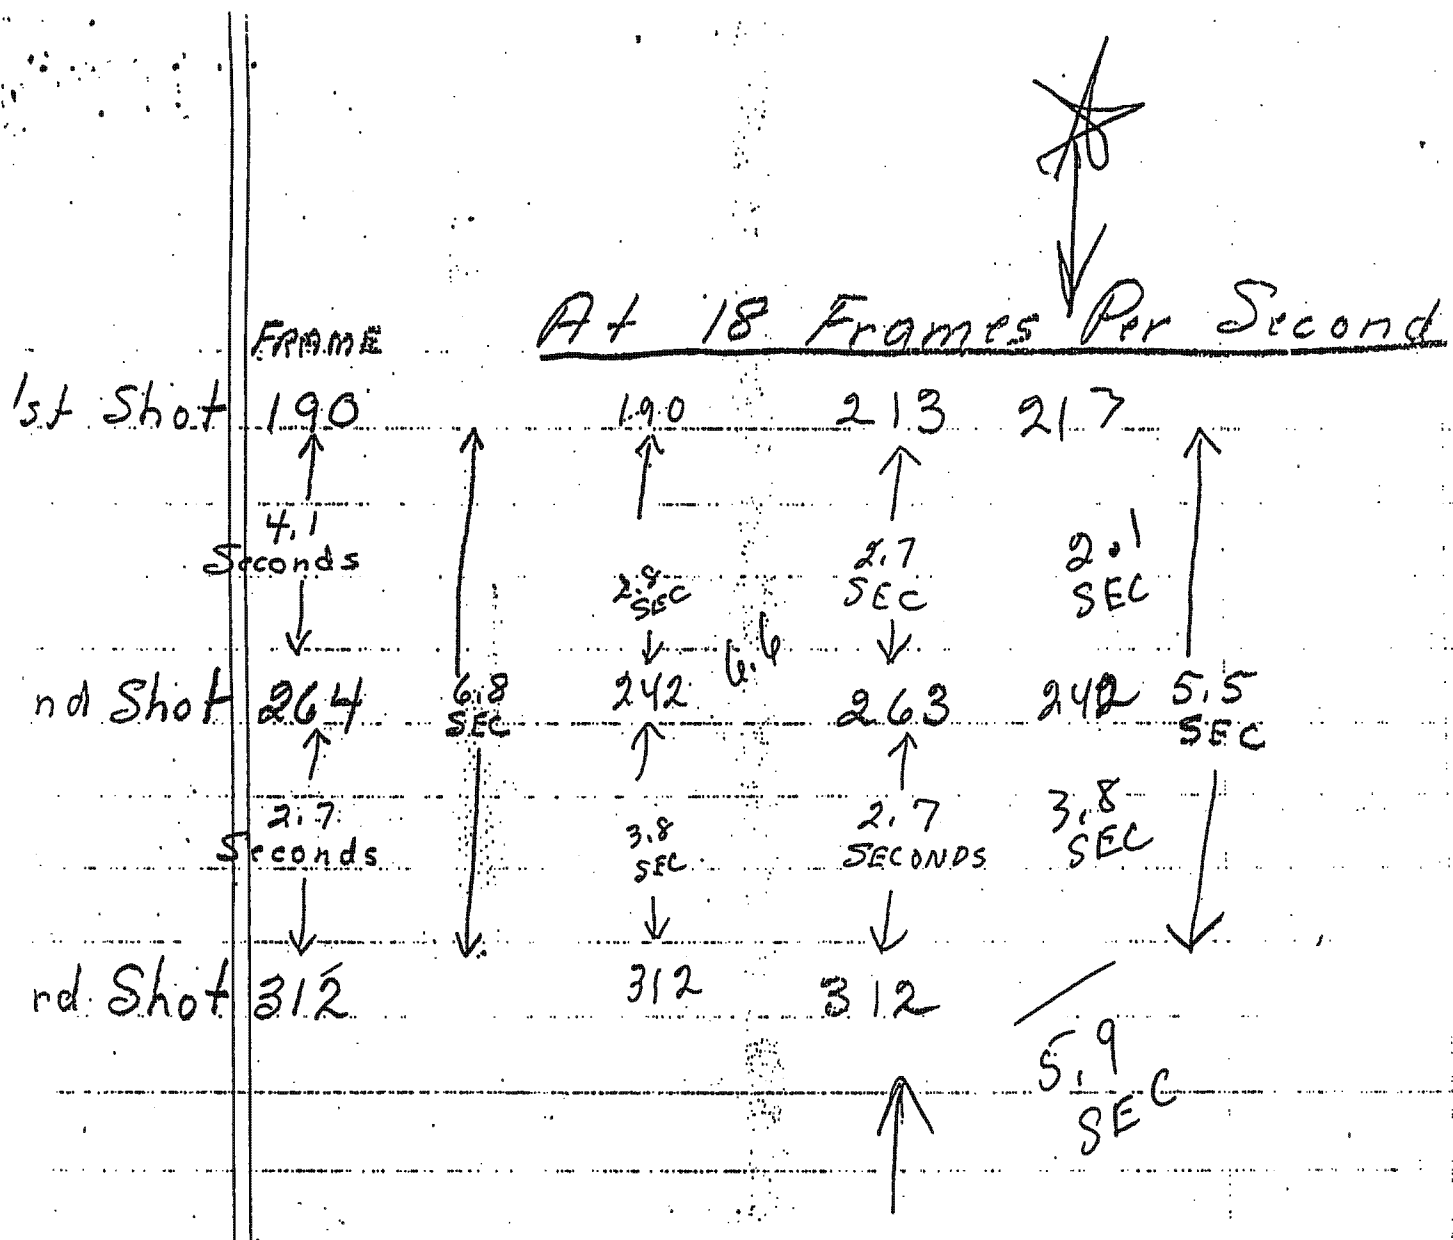 FRAME At 18 Frames Per Second
1st Shot 190 190 213 217
4.1 Seconds 2.8 SEC 2.7 SEC 2.1 SEC
6.6
nd Shot 264 6.8 SEC 242 263 242 5.5 SEC
2.7 Seconds 3.8 SEC 2.7 SECONDS 3.8 SEC
rd Shot 312 312 312
5.9 SEC